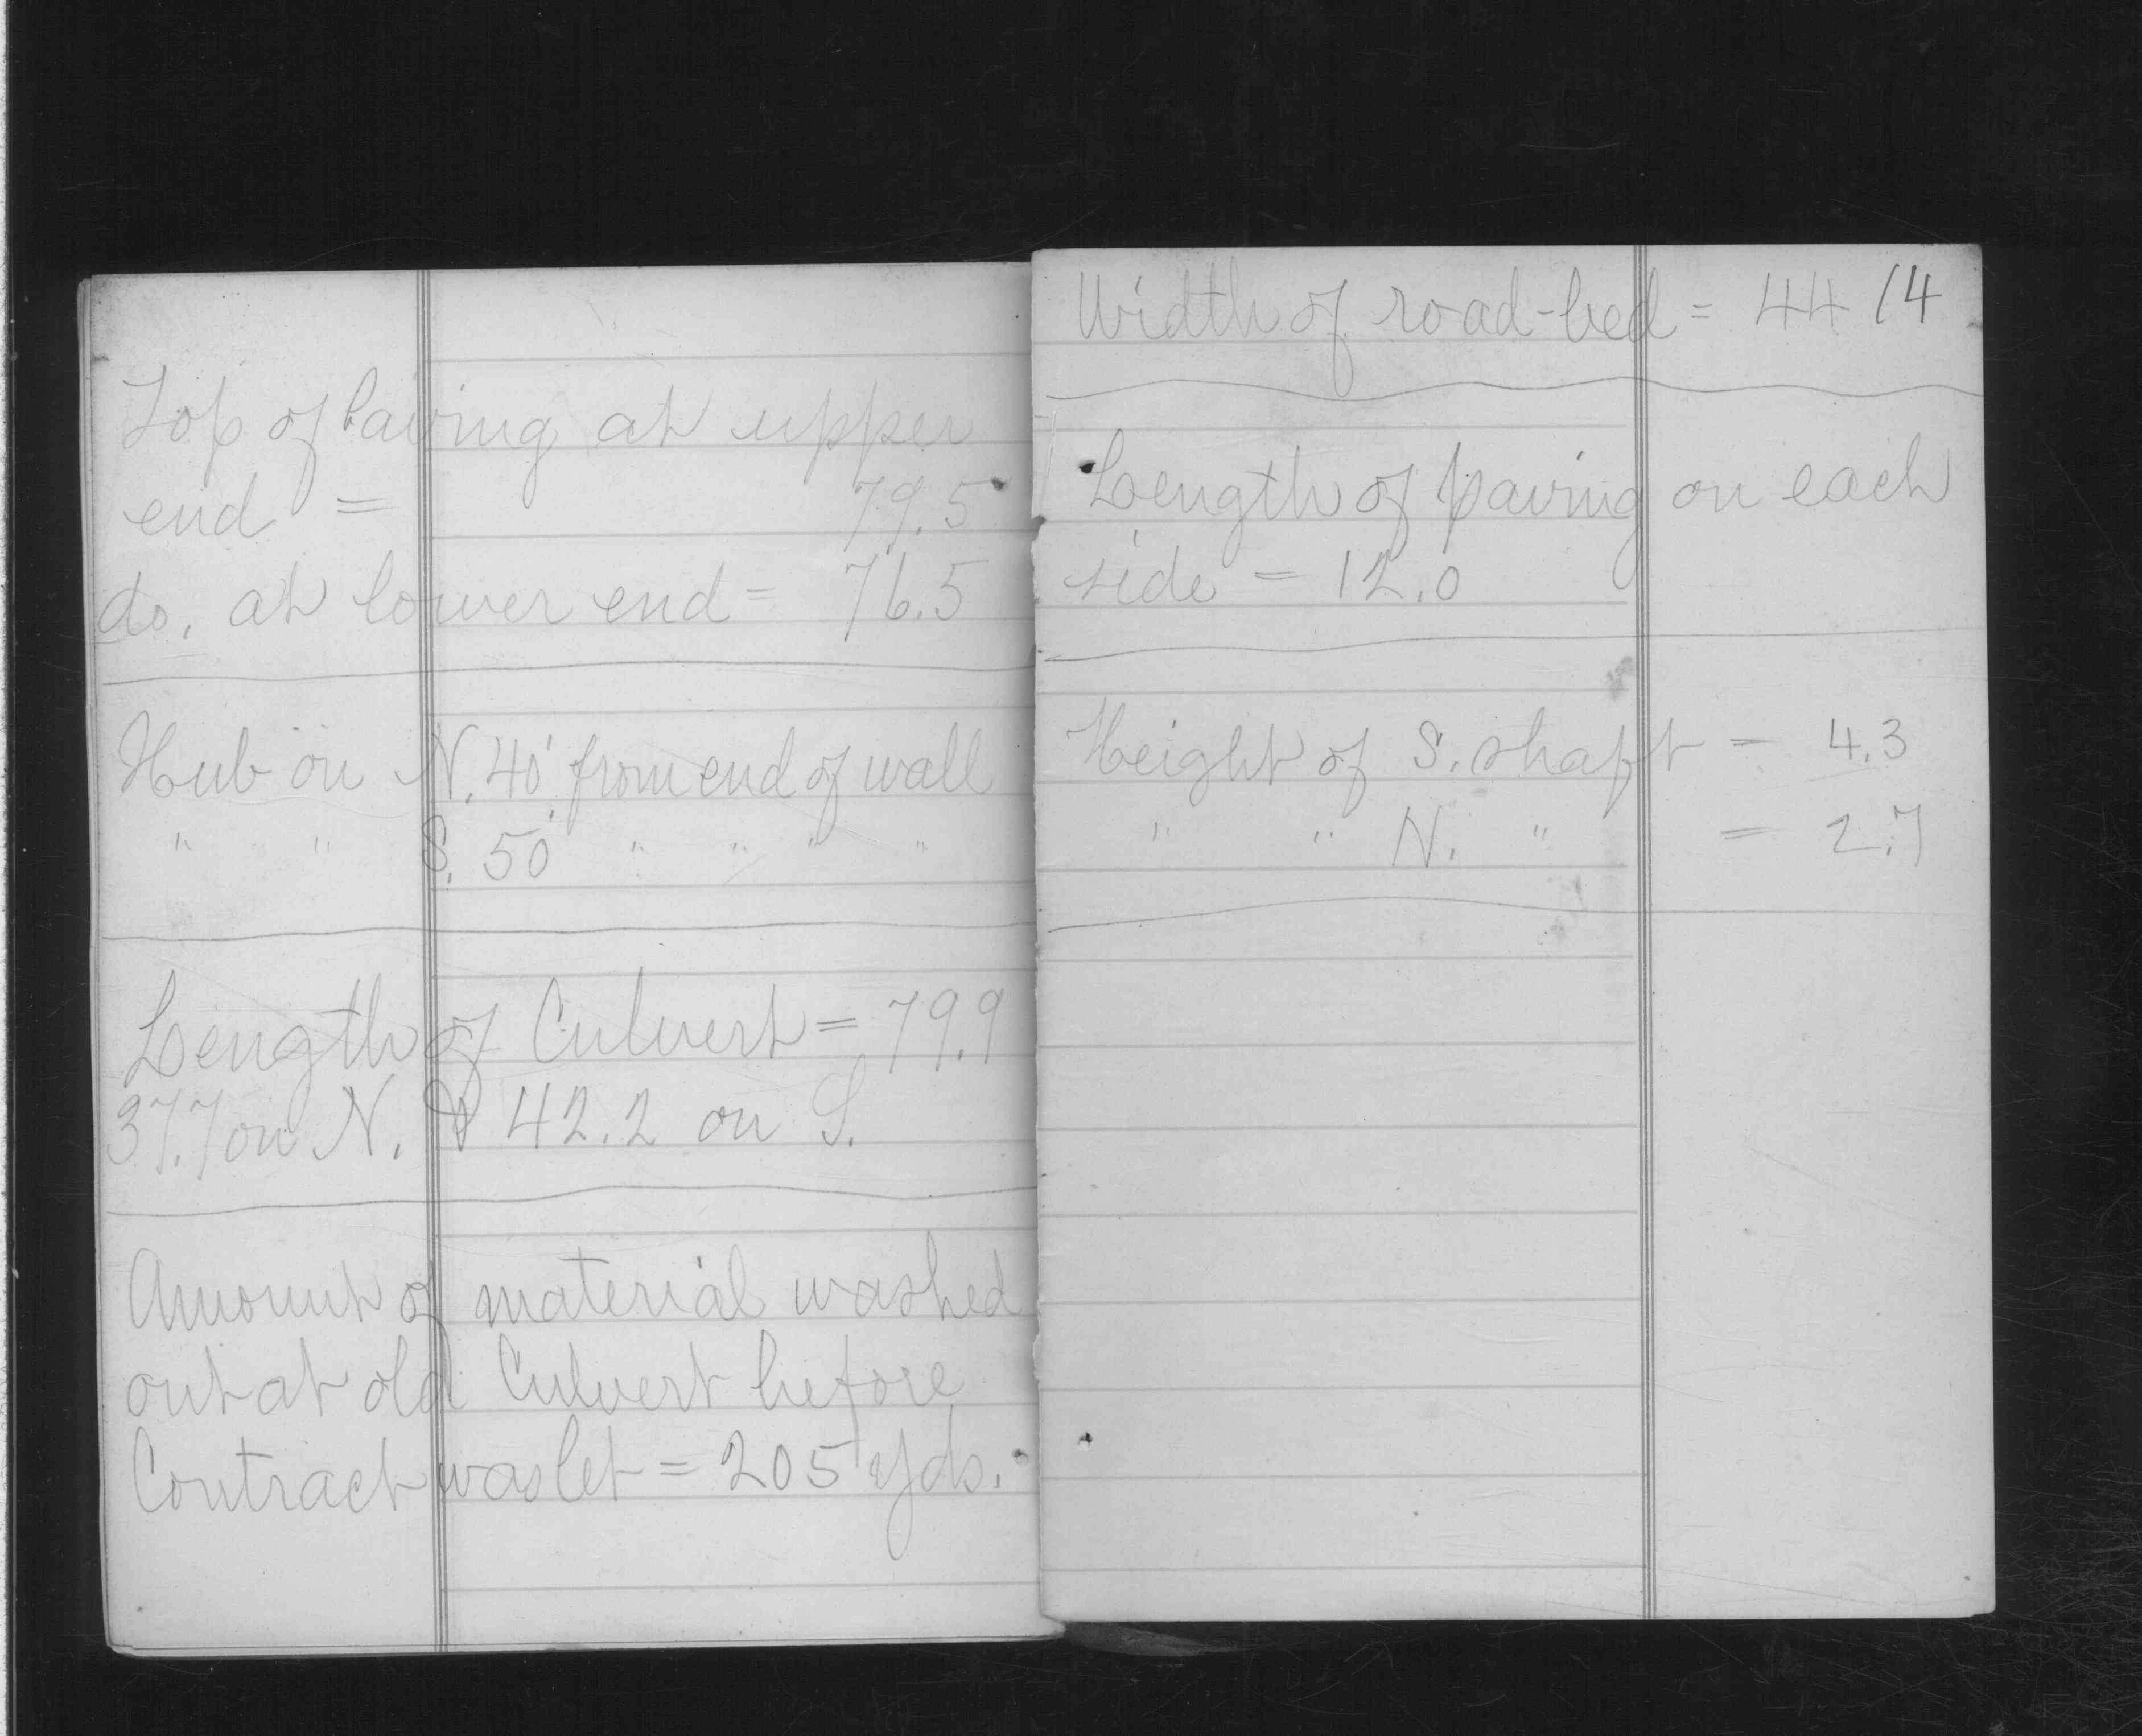 Top of Paving at upper
end = 79.5
do. at lower end = 76.5
Hub on N. 40' from end of wall
" " S. 50' " " " "
Length of Culvert = 79.9
37.7 on N. & 42.2 on S.
Amount of material washed
out at old Culvert before
Contract was let = 205 yds.
Width of road-bed = 44
14
Length of paving on each
side = 12.0
Height of S. shaft = 4.3
" " N. " = 2.7